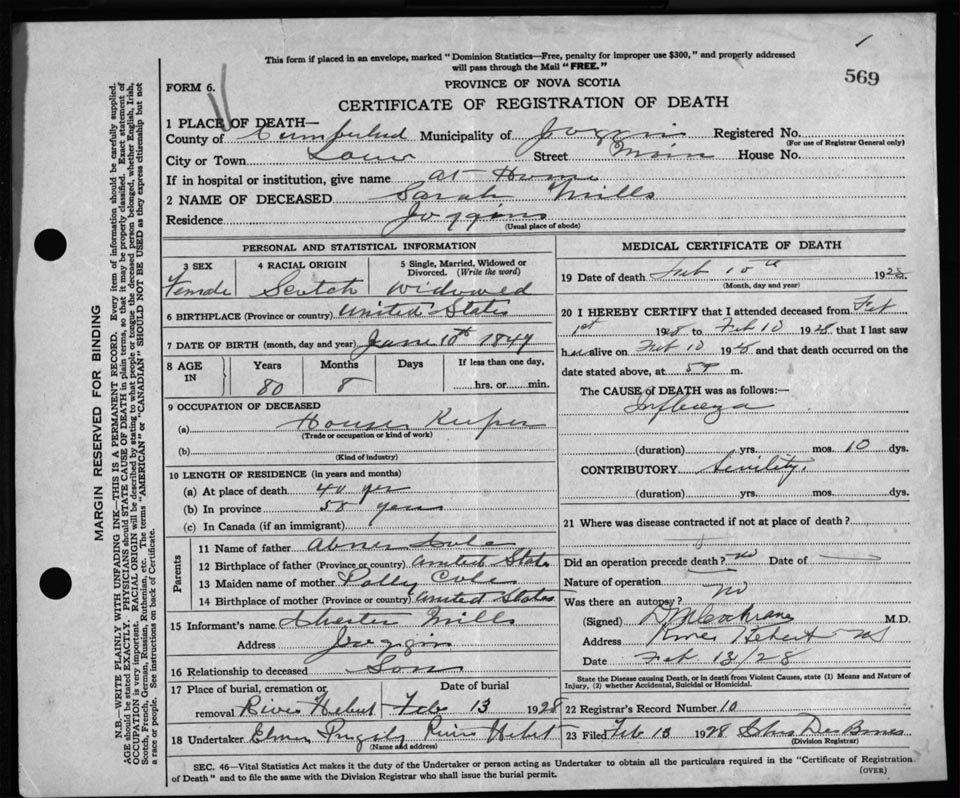 This form if placed in an envelope, marked "Dominion Statistics—Free, penalty for improper use $300," and properly addressed
will pass through the Mail "FREE."
569
FORM 6.
PROVINCE OF NOVA SCOTIA
CERTIFICATE OF REGISTRATION OF DEATH
1 PLACE OF DEATH—
County of Municipality of Joggins Registered No.
(For use of Registrar General only)
City or Town Street Main House No.
If in hospital or institution, give name at Home
2 NAME OF DECEASED Sarah Mills
Residence Joggins
(Usual place of abode)
PERSONAL AND STATISTICAL INFORMATION
3 SEX 4 RACIAL ORIGIN 5 Single, Married, Widowed or
Divorced. (Write the word)
Female Scotch widowed
6 BIRTHPLACE (Province or country) United States
7 DATE OF BIRTH (month, day and year) June 10th 1847
8 AGE IN Years Months Days If less than one day,
80 8 hrs. or min.
9 OCCUPATION OF DECEASED
(a) House Keeper
(Trade or occupation or kind of work)
(b)
(Kind of industry)
10 LENGTH OF RESIDENCE (in years and months)
(a) At place of death 40 yrs
(b) In province 58 years
(c) In Canada (if an immigrant)
Parents
11 Name of father Abner
12 Birthplace of father (Province or country) United States
13 Maiden name of mother Polly Cole
14 Birthplace of mother (Province or country) United States
15 Informant's name Chester Mills
Address Joggins
16 Relationship to deceased Son
17 Place of burial, cremation or Date of burial
removal River Hebert Feb 13 1928
18 Undertaker River Hebert
(Name and address)
MEDICAL CERTIFICATE OF DEATH
19 Date of death Feb 10th 1928
(Month, day and year)
20 I HEREBY CERTIFY that I attended deceased from Feb
1st 1928 to Feb 10 1928 that I last saw
her alive on Feb 10 1928 and that death occurred on the
date stated above, at m.
The CAUSE OF DEATH was as follows:—
Influenza
(duration) yrs. mos. 10 dys.
CONTRIBUTORY Senility
(duration) yrs. mos. dys.
21 Where was disease contracted if not at place of death?
Did an operation precede death? no Date of
Nature of operation
Was there an autopsy? no
(Signed) Cochrane M.D.
Address River Hebert NS
Date Feb 13/28
State the Disease causing Death, or in death from Violent Causes, state (1) Means and Nature
of Injury, (2) whether Accidental, Suicidal or Homicidal.
22 Registrar's Record Number 10
23 Filed Feb 13 1928
(Division Registrar)
SEC. 46—Vital Statistics Act makes it the duty of the Undertaker or person acting as Undertaker to obtain all the particulars required in the "Certificate of Registration
of Death" and to file the same with the Division Registrar who shall issue the burial permit.
(OVER)
MARGIN RESERVED FOR BINDING
N.B.—WRITE PLAINLY WITH UNFADING INK—THIS IS A PERMANENT RECORD. Every item of information should be carefully supplied.
AGE should be stated EXACTLY. PHYSICIANS should STATE CAUSE OF DEATH in plain terms, so that it may be properly classified. Exact statement of
OCCUPATION is very important. RACIAL ORIGIN will be described by stating to what people or tongue the deceased person belonged, whether English, Irish,
Scotch, French, German, Russian, Ruthenian, etc. The terms "AMERICAN" or "CANADIAN" SHOULD NOT BE USED as they express citizenship but not
a race or people. See instructions on back of Certificate.